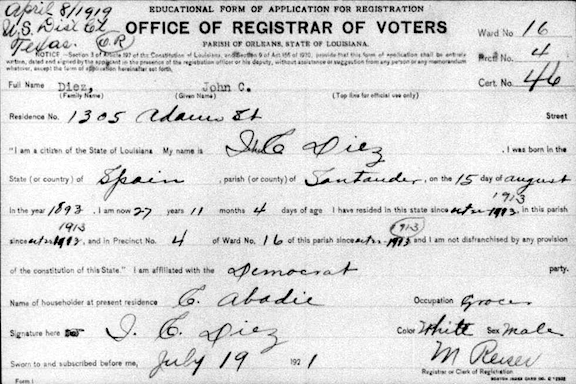 April 8/1919
U.S. Dist Ct
Texas (O.R)
EDUCATIONAL FORM OF APPLICATION FOR REGISTRATION
OFFICE OF REGISTRAR OF VOTERS
PARISH OF ORLEANS, STATE OF LOUISIANA.
Ward No. 16
Prct No. 4
Cert. No. 46
NOTICE—Section 3 of Article 197 of the Constitution of Louisiana, and Section 9 of Act 165 of 1912, provide that this form of application shall be entirely
written, dated and signed by the applicant in the presence of the registration officer or his deputy, without assistance or suggestion from any person or any memorandum
whatever, except the form of application hereinafter set forth.
Full Name Diez, John C.
(Family Name) (Given Name) (Top line for official use only)
Residence No. 1305 Adams St Street
"I am a citizen of the State of Louisiana My name is J. C. Diez , I was born in the
State (or country) of Spain , parish (or county) of Santander , on the 15 day of august
1913
In the year 1893 , I am now 27 years 11 months 4 days of age I have resided in this state since , in this parish
1913 1913
since , and in Precinct No. 4 of Ward No. 16 of this parish since and I am not disfranchised by any provision
of the constitution of this State." I am affiliated with the Democrat party.
Name of householder at present residence C. Abadie Occupation Grocer
Signature here J. C. Diez Color White Sex Male
Sworn to and subscribed before me, July 19 1921
M Reiser
Registrar or Clerk of Registration
Form 1